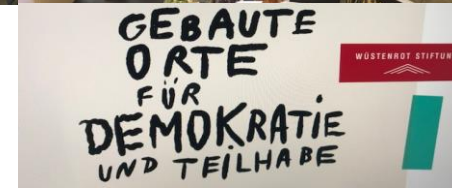 GEBAUTE
ORTE
FÜR
DEMOKRATIE
UND TEILHABE
WÜSTENROT STIFTUN